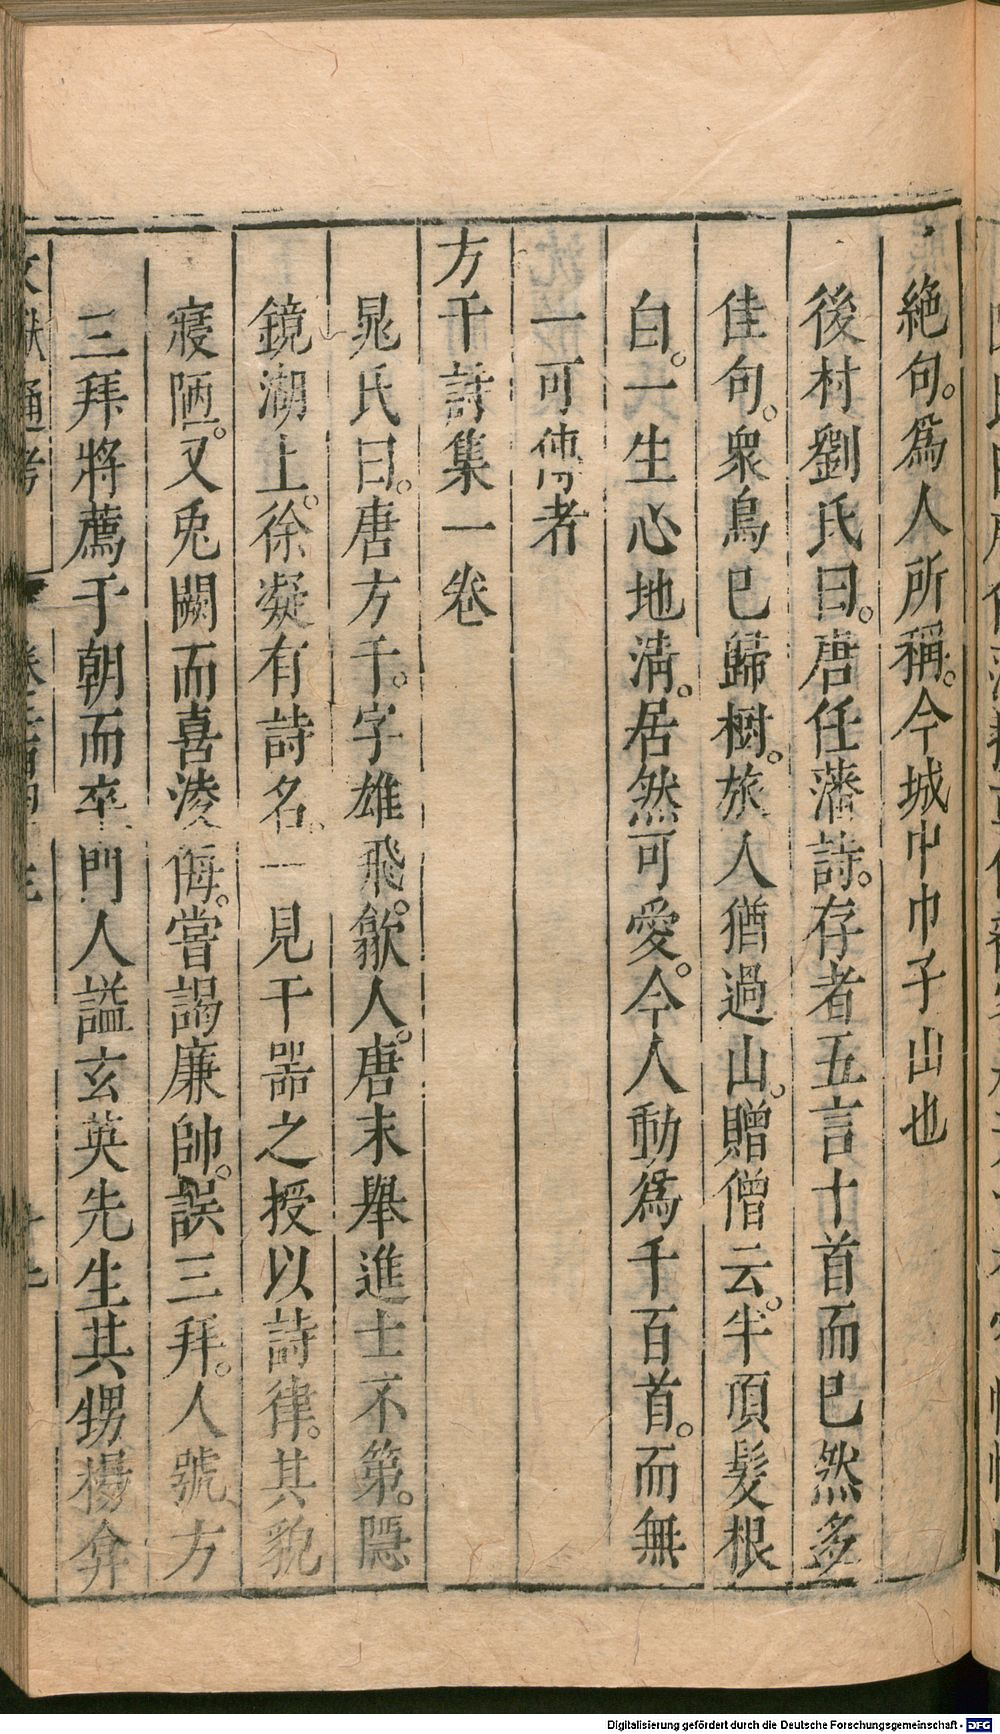 絶句。爲人所稱。今城中巾子山也
後村劉氏曰。唐任藩詩。存者五言十首而已然多
佳句。衆鳥已歸樹。旅人猶過山。贈僧云。半頂髮根
白。一生心地淸。居然可愛。今人動爲千百首。而無
一可傳者
方干詩集一卷
晁氏曰。唐方干。字雄飛。歙人。唐末舉進士不第。隱
鏡湖上。徐凝有詩名。一見干噐之授以詩律。其貌
寢陋。又兎闕而喜淩侮。嘗謁廉帥。誤三拜。人號方
三拜將薦于朝而卒門人謚玄英先生其甥楊弇
文獻通考
Digitalisierung gefördert durch die Deutsche Forschungsgemeinschaft - DFG